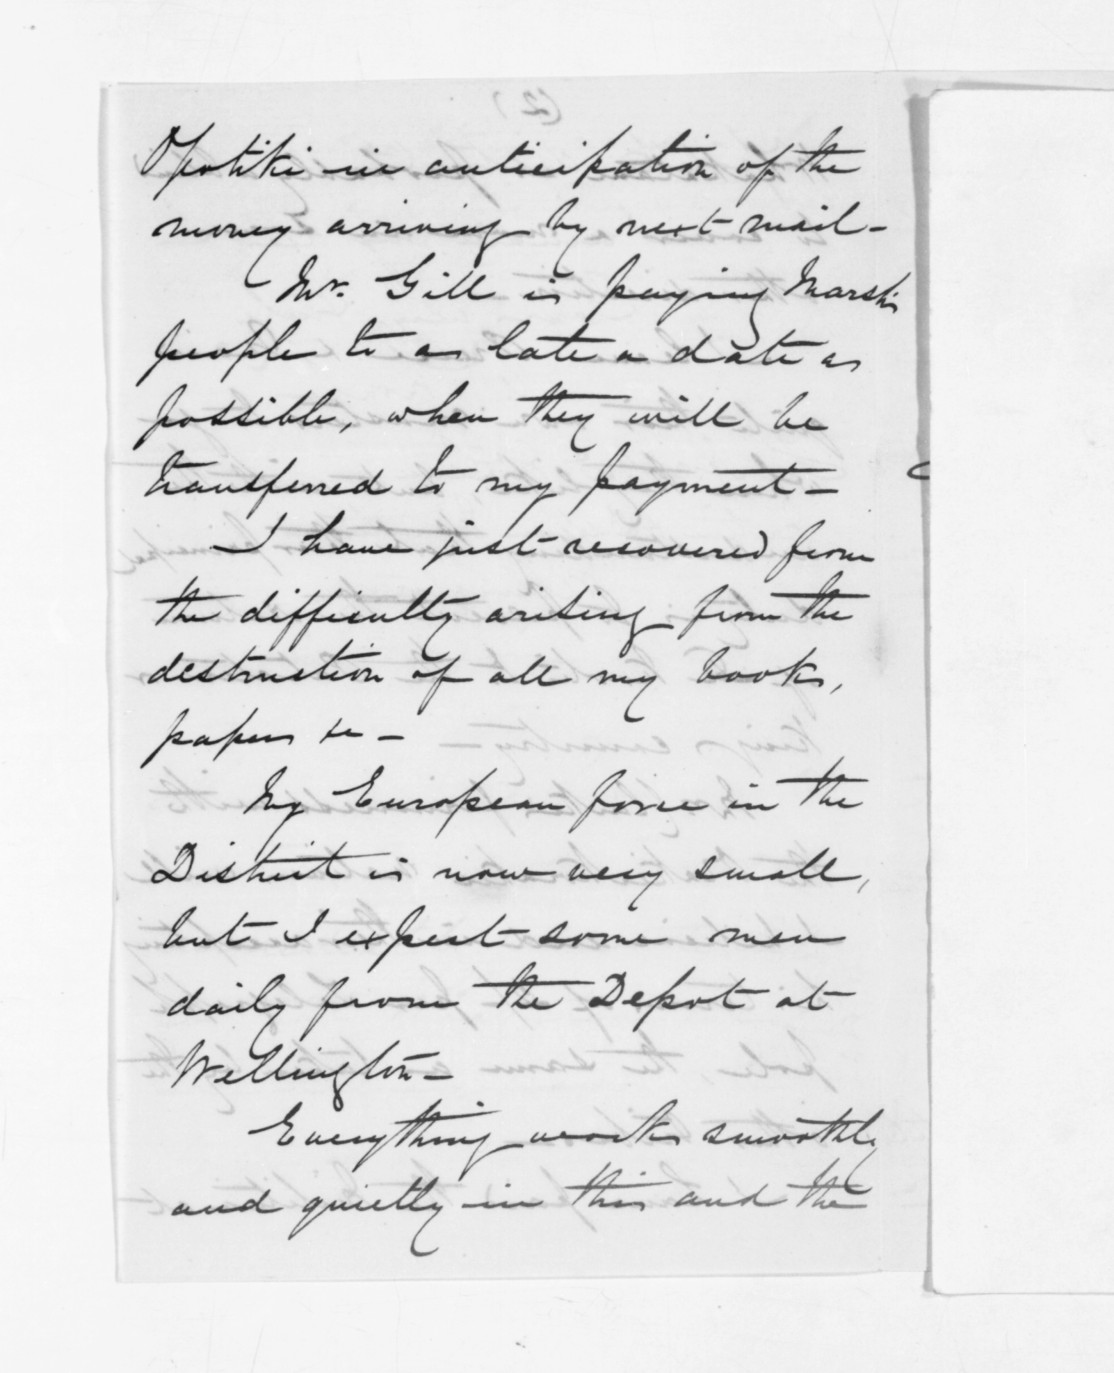 Opotiki in anticipation of the
money arriving by next mail -
Mr. Gill is paying Marsh's
people to as late a date as
possible, when they will be
transferred to my payment -
I have just recovered from
the difficulty arising from the
destruction of all my books,
papers &c -
My European force in the
District is now very small,
but I expect some men
daily from the Depot at
Wellington -
Everything works smoothly
and quietly in this and the